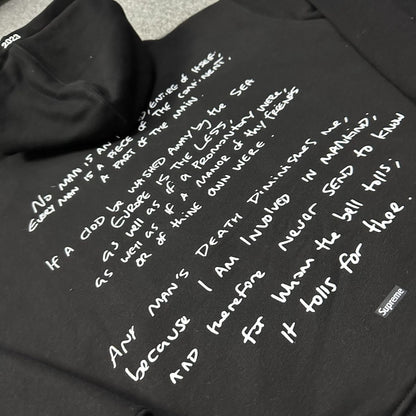 2023
No MAN IS AN ISLAND, ENTIRE OF ITSELF,
EVERY MAN IS A PIECE OF THE CONTINENT,
A PART OF THE MAIN.
If A Clod be WASHED AWAY by the SEA
EUROPE IS THE LESS,
as well as if a PROMONTORY WERE,
as well as if a MANOR of thy FRIENDS
OR OF thine OWN WERE.
ANY MAN'S DEATH DIMINISHES ME,
because I AM INVOLVED IN MANKIND;
AND therefore NEVER SEND to KNOW
for Whom the bell tolls;
It tolls for thee.
Supreme